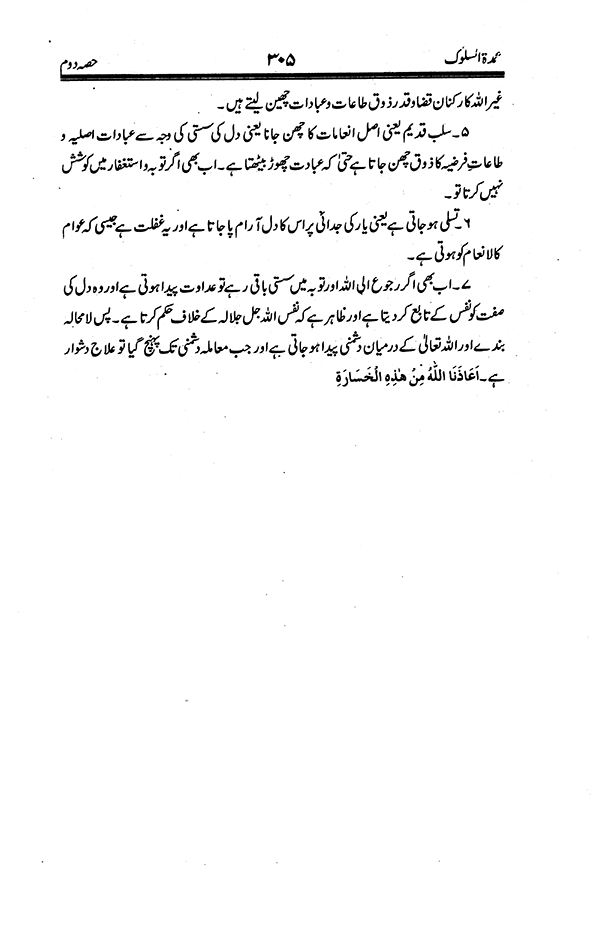 عمدۃ السلوک ۳۰۵ حصہ دوم
غیر اللہ کا رکنان قضا و قدر ذوق طاعات و عبادات چھین لیتے ہیں۔
۵۔ سلب قدیم یعنی اصل انعامات کا چھن جانا یعنی دل کی سستی کی وجہ سے عبادات اصلیہ و
طاعاتِ فرضیہ کا ذوق چھن جاتا ہے حتیٰ کہ عبادت چھوڑ بیٹھتا ہے۔ اب بھی اگر توبہ و استغفار میں کوشش
نہیں کرتا تو۔
۶۔ تسلی ہو جاتی ہے یعنی یار کی جدائی پر اس کا دل آرام پا جاتا ہے اور یہ غفلت ہے جیسی کہ عوام
کالانعام کو ہوتی ہے۔
۷۔ اب بھی اگر رجوع الی اللہ اور توبہ میں سستی باقی رہے تو عداوت پیدا ہوتی ہے اور وہ دل کی
صفت کو نفس کے تابع کر دیتا ہے اور ظاہر ہے کہ نفس اللہ جل جلالہ کے خلاف حکم کرتا ہے۔ پس لامحالہ
بندے اور اللہ تعالیٰ کے درمیان دشمنی پیدا ہو جاتی ہے اور جب معاملہ دشمنی تک پہنچ گیا تو علاج دشوار
ہے۔ اَعَاذَنَا اللّٰہُ مِنْ هٰذِہِ الْخَسَارَةِ